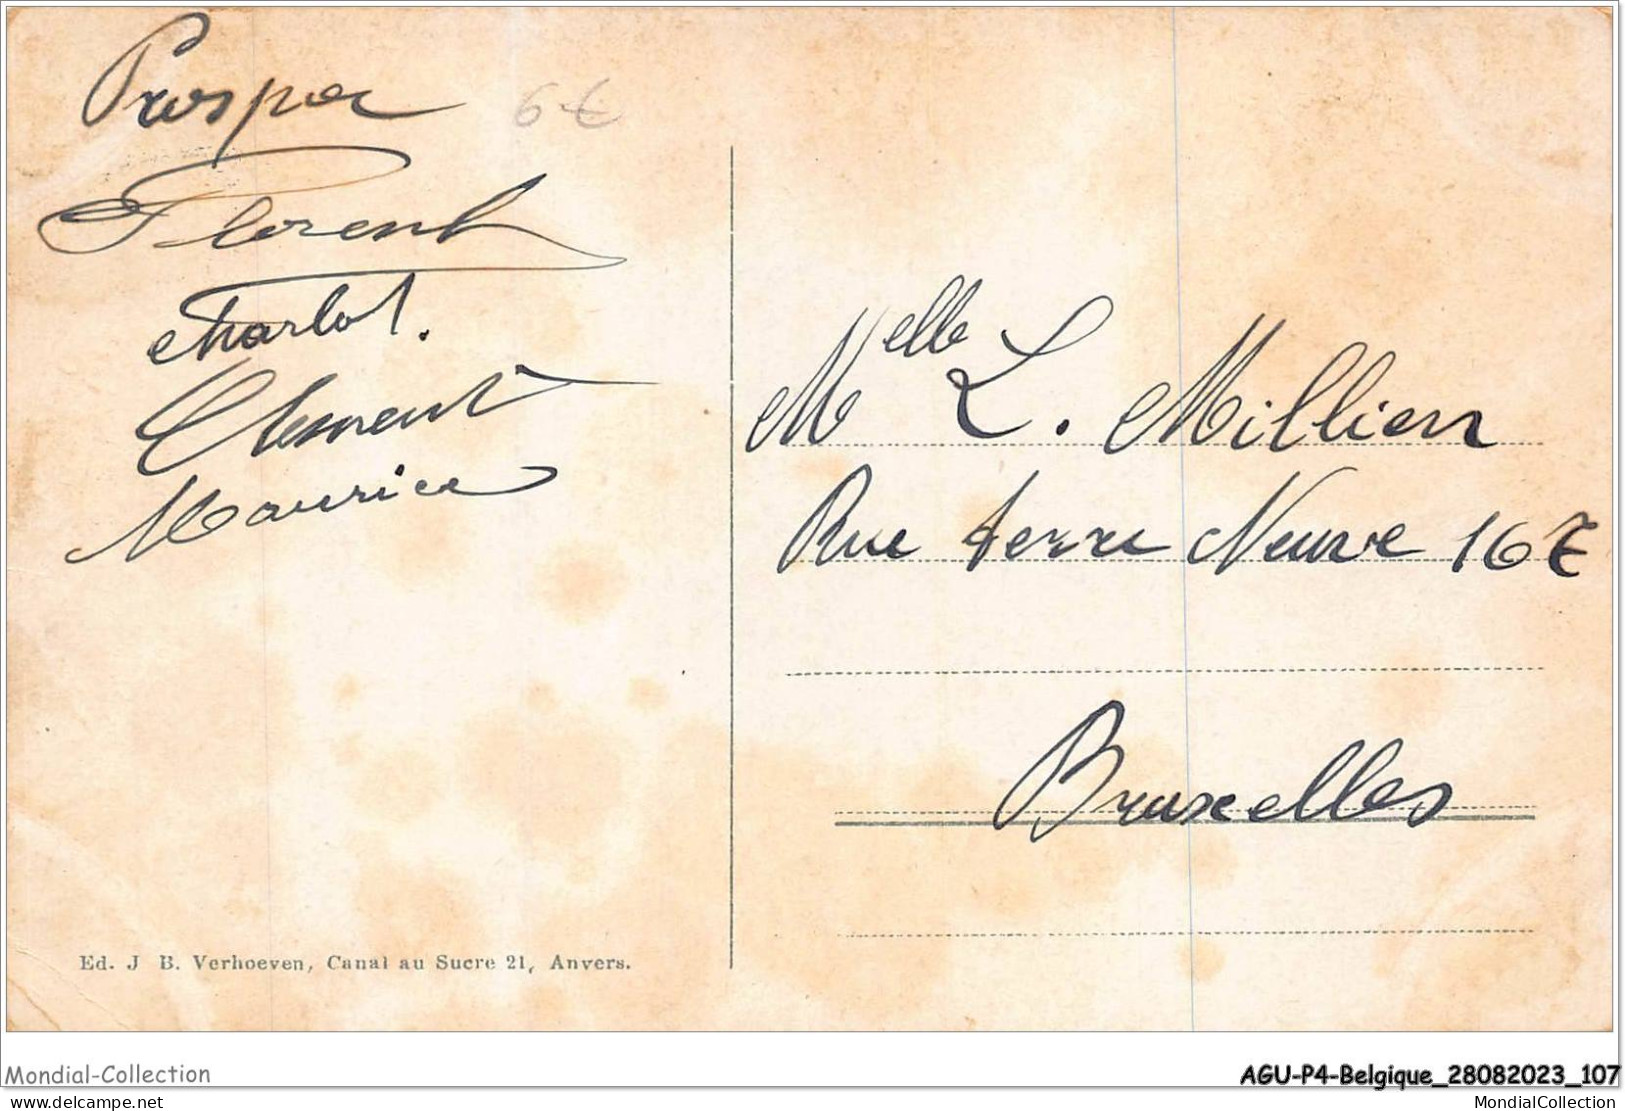 Prosper
6 €
Florent
Charlot.
Clement
Maurice
Melle L. Millien
Rue terre Neuve 167
Bruxelles
Ed. J B. Verhoeven, Canal au Sucre 21, Anvers.
Mondial-Collection
AGU-P4-Belgique_28082023_107
delcampe.net
MondialCollection